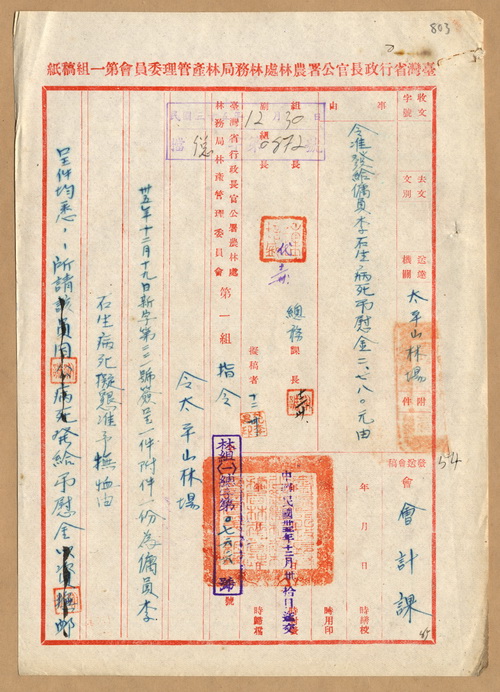 803
臺灣省行政長官公署農林處林務局林產管理委員會第一組稿紙
收文 字號
去文 文別
送達 機關
太平山林場
附件
事由
令准發給傭員李石生病死弔慰金二、七八〇元由
會
會計課
組長
副組長
代
總務課長
擬稿者
12月30日
0872
臺灣省行政長官公署農林處林務局林產管理委員會第一組
指令
林組(一)總第 號
中華民國卅五年十二月卅拾日送交
年 月 日
時繕校
時用印
時歸檔
令太平山林場
卅五年十二月十九日新字第二三一號簽呈一件附件一份為傭員李
石生病死擬懇准予撫恤由
呈件均悉,所請該員因公病死發給弔慰金